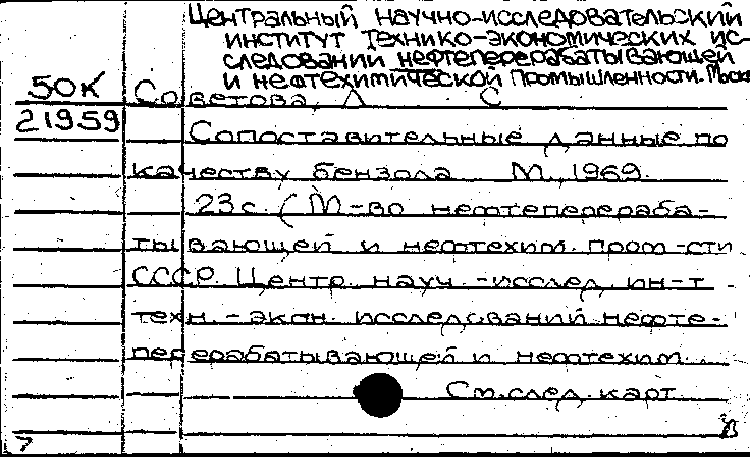 Центральный научно-исследовательский
институт технико-экономических ис-
следований нефтеперерабатывающей
и нефтехимической промышленности. Москва
50К Советова, Л С
21959 Сопоставительные данные по
качеству бензола М., 1969.
23 с. (М-во нефтеперераба-
тывающей и нефтехим. пром-сти
СССР. Центр. науч.-исслед. ин-т
техн.-экон. исследований нефте-
перерабатывающей и нефтехим.
См. след. карт.